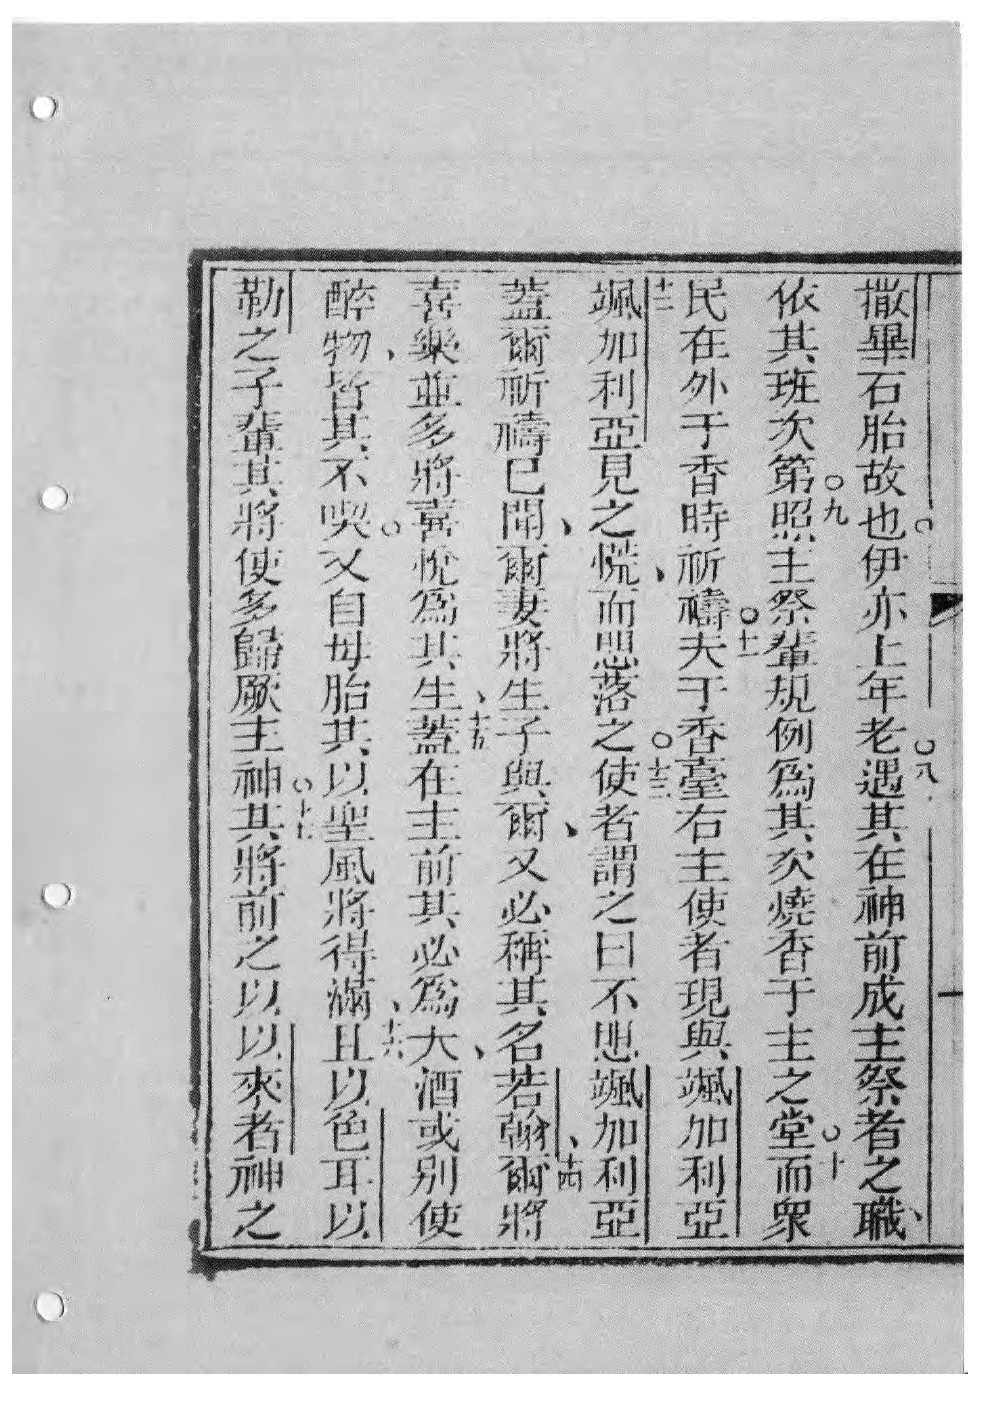 撒畢石胎故也伊亦上年老遇其在神前成主祭者之職
依其班次第照主祭輩規例為其次燒香于主之堂而眾
民在外于香時祈禱夫于香臺右主使者現與颯加利亞
颯加利亞見之慌而愳落之使者謂之曰不愳颯加利亞
蓋爾祈禱已聞爾妻將生子與爾又必稱其名若翰爾將
喜樂並多將喜悅為其生蓋在主前其必為大酒或別使
醉物皆其不喫又自母胎其以聖風將得滿且以色耳以
勒之子輩其將使多歸厥主神其將前之以以來者神之